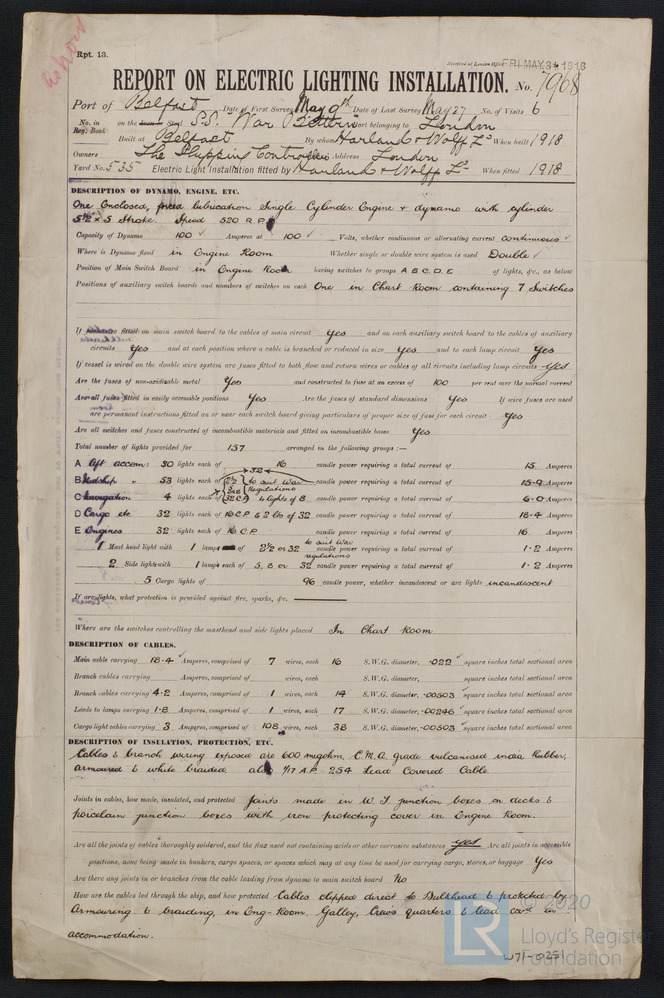 Rpt. 13.
Received at London Office FRI. MAY. 31. 1918
REPORT ON ELECTRIC LIGHTING INSTALLATION. No. 7968
Port of Belfast Date of First Survey May 9th Date of Last Survey May 27 No. of Visits 6
No. in Reg. Book on the Iron Steel S.S. "War Bittern" Port belonging to London
Built at Belfast By whom Harland & Wolff Ld When built 1918
Owners The Shipping Controller Address London
Yard No. 535 Electric Light Installation fitted by Harland & Wolff Ld When fitted 1918
DESCRIPTION OF DYNAMO, ENGINE, ETC.
One Enclosed, forced lubrication Single Cylinder Engine & dynamo with cylinder
5½ x 5 Stroke. Speed 520 R.P.M
Capacity of Dynamo 100 Amperes at 100 Volts, whether continuous or alternating current continuous
Where is Dynamo fixed in Engine Room Whether single or double wire system is used Double
Position of Main Switch Board in Engine Room having switches to groups A B C D E of lights, &c., as below
Positions of auxiliary switch boards and numbers of switches on each One in Chart Room containing 7 Switches
If fuses are fitted on main switch board to the cables of main circuit Yes and on each auxiliary switch board to the cables of auxiliary
circuits Yes and at each position where a cable is branched or reduced in size Yes and to each lamp circuit Yes
If vessel is wired on the double wire system are fuses fitted to both flow and return wires or cables of all circuits including lamp circuits Yes
Are the fuses of non-oxidizable metal Yes and constructed to fuse at an excess of 100 per cent over the normal current
Are all fuses fitted in easily accessible positions Yes Are the fuses of standard dimensions Yes If wire fuses are used
are permanent instructions fitted on or near each switch board giving particulars of proper size of fuse for each circuit Yes
Are all switches and fuses constructed of incombustible materials and fitted on incombustible bases Yes
Total number of lights provided for 157 arranged in the following groups :—
A Aft accom: 30 lights each of 16 candle power requiring a total current of 15 Amperes
B Midship " 53 lights each of 32 to suit War Regulations candle power requiring a total current of 15.9 Amperes
C Navigation 4 lights each of 32 C.P. 4 lights of 8 candle power requiring a total current of 6.0 Amperes
D Cargo etc 32 lights each of 16 C.P. & 2 Lts of 32 candle power requiring a total current of 18.4 Amperes
E Engines 32 lights each of 16 C.P. candle power requiring a total current of 16 Amperes
1 Mast head light with 1 lamp of 2½ or 32 to suit War regulations candle power requiring a total current of 1.2 Amperes
2 Side lights with 1 lamps each of 5, 8 or 32 candle power requiring a total current of 1.2 Amperes
5 Cargo lights of 96 candle power, whether incandescent or arc lights incandescent
If arc lights, what protection is provided against fire, sparks, &c.
Where are the switches controlling the masthead and side lights placed In Chart Room
DESCRIPTION OF CABLES.
Main cable carrying 18.4 Amperes, comprised of 7 wires, each 16 S.W.G. diameter, .022 square inches total sectional area
Branch cables carrying Amperes, comprised of wires, each S.W.G. diameter, square inches total sectional area
Branch cables carrying 4.2 Amperes, comprised of 1 wires, each 14 S.W.G. diameter, .00503 square inches total sectional area
Leads to lamps carrying 1.8 Amperes, comprised of 1 wires, each 17 S.W.G. diameter, .00246 square inches total sectional area
Cargo light cables carrying 3 Amperes, comprised of 108 wires, each 38 S.W.G. diameter, .00503 square inches total sectional area
DESCRIPTION OF INSULATION, PROTECTION, ETC.
Cables & branch wiring exposed are 600 megohm, C.M.A. grade vulcanised india Rubber,
armoured & white braided, also 1/17 A.P. 254 Lead Covered Cable
Joints in cables, how made, insulated, and protected Joints made in W.T. junction boxes on decks &
porcelain junction boxes with iron protecting cover in Engine Room.
Are all the joints of cables thoroughly soldered, and the flux used not containing acids or other corrosive substances yes Are all joints in accessible
positions, none being made in bunkers, cargo spaces, or spaces which may at any time be used for carrying cargo, stores, or baggage Yes
Are there any joints in or branches from the cable leading from dynamo to main switch board No
How are the cables led through the ship, and how protected Cables clipped direct to Bulkhead & protected by
Armouring & braiding, in Eng-Room, Galley, Crew's quarters & lead covd in
accommodation.
© 2020
LR
Lloyd's Register
Foundation
W71-0251